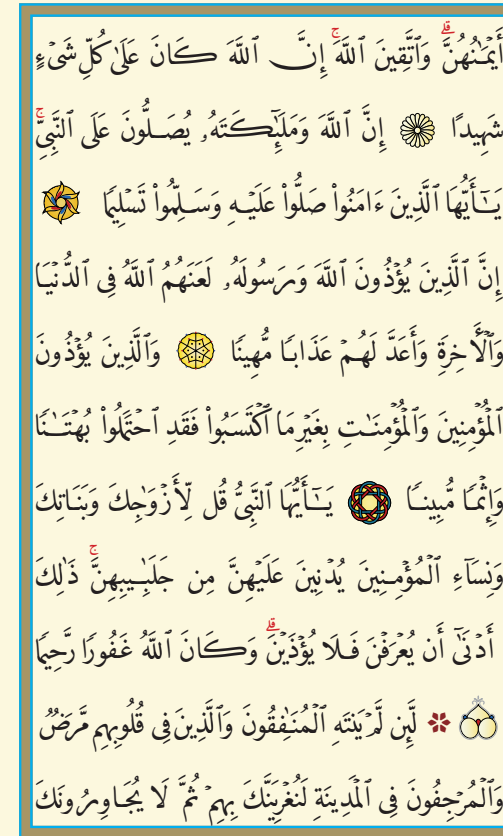 أَيْمَٰنُهُنَّ ۗ وَٱتَّقِينَ ٱللَّهَ ۚ إِنَّ ٱللَّهَ كَانَ عَلَىٰ كُلِّ شَىْءٍ
شَهِيدًا ۝ إِنَّ ٱللَّهَ وَمَلَٰٓئِكَتَهُۥ يُصَلُّونَ عَلَى ٱلنَّبِىِّ ۚ
يَٰٓأَيُّهَا ٱلَّذِينَ ءَامَنُوا۟ صَلُّوا۟ عَلَيْهِ وَسَلِّمُوا۟ تَسْلِيمًا ۝
إِنَّ ٱلَّذِينَ يُؤْذُونَ ٱللَّهَ وَرَسُولَهُۥ لَعَنَهُمُ ٱللَّهُ فِى ٱلدُّنْيَا
وَٱلْأَخِرَةِ وَأَعَدَّ لَهُمْ عَذَابًا مُّهِينًا ۝ وَٱلَّذِينَ يُؤْذُونَ
ٱلْمُؤْمِنِينَ وَٱلْمُؤْمِنَٰتِ بِغَيْرِ مَا ٱكْتَسَبُوا۟ فَقَدِ ٱحْتَمَلُوا۟ بُهْتَٰنًا
وَإِثْمًا مُّبِينًا ۝ يَٰٓأَيُّهَا ٱلنَّبِىُّ قُل لِّأَزْوَٰجِكَ وَبَنَاتِكَ
وَنِسَآءِ ٱلْمُؤْمِنِينَ يُدْنِينَ عَلَيْهِنَّ مِن جَلَٰبِيبِهِنَّ ۚ ذَٰلِكَ
أَدْنَىٰٓ أَن يُعْرَفْنَ فَلَا يُؤْذَيْنَ ۗ وَكَانَ ٱللَّهُ غَفُورًا رَّحِيمًا
۝ لَّئِن لَّمْ يَنتَهِ ٱلْمُنَٰفِقُونَ وَٱلَّذِينَ فِى قُلُوبِهِم مَّرَضٌ
وَٱلْمُرْجِفُونَ فِى ٱلْمَدِينَةِ لَنُغْرِيَنَّكَ بِهِمْ ثُمَّ لَا يُجَاوِرُونَكَ